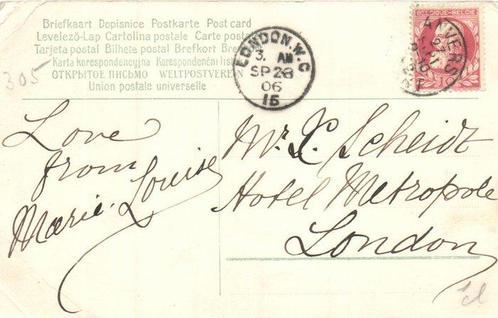 Briefkaart Dopisnice Postkarte Post card
Levelező-Lap Cartolina postale Carte posta
Tarjeta postal Bilhete postal Brefkort Brev
Karta korespondencyjna Korespondenční list
ОТКРЫТОЕ ПИСЬМО WELTPOSTVEREIN
Union postale universelle
LONDON.W.C
3. AM
SP 28
06
15
BELGIQUE·BELGIË
ANVERS
305
Love
from
Marie-Louise
Mr. L. Scheidt
Hotel Metropole
London